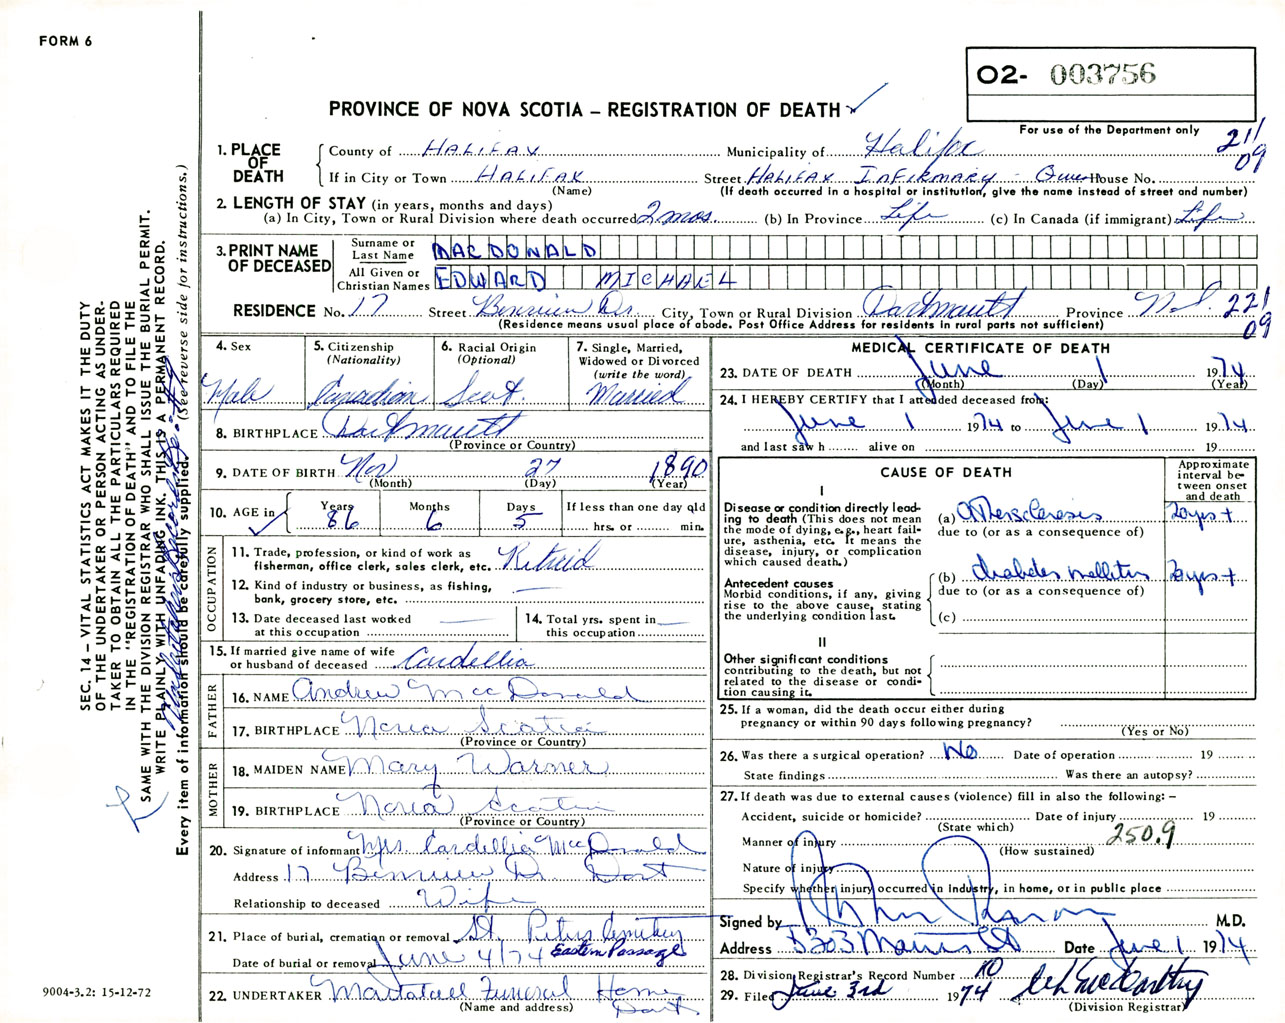 FORM 6
O2- 003756
PROVINCE OF NOVA SCOTIA – REGISTRATION OF DEATH ✓
For use of the Department only
211
09
1. PLACE OF DEATH
County of HALIFAX Municipality of Halifax
If in City or Town HALIFAX Street HALIFAX INFIRMARY House No.
(Name) (If death occurred in a hospital or institution, give the name instead of street and number)
2. LENGTH OF STAY (in years, months and days)
(a) In City, Town or Rural Division where death occurred 2 mos. (b) In Province Life (c) In Canada (if immigrant) Life
3. PRINT NAME OF DECEASED
Surname or Last Name MACDONALD
All Given or Christian Names EDWARD MICHAEL
RESIDENCE No. 17 Street Dr. City, Town or Rural Division Dartmouth Province N.S. 221
09
(Residence means usual place of abode. Post Office Address for residents in rural parts not sufficient)
4. Sex
Male
5. Citizenship
(Nationality)
Canadian
6. Racial Origin
(Optional)
Scot.
7. Single, Married,
Widowed or Divorced
(write the word)
Married
8. BIRTHPLACE Dartmouth
(Province or Country)
9. DATE OF BIRTH Nov 27 1890
(Month) (Day) (Year)
10. AGE in
Years 86
Months 6
Days 5
If less than one day old
hrs. or min.
OCCUPATION
11. Trade, profession, or kind of work as
fisherman, office clerk, sales clerk, etc. Retired
12. Kind of industry or business, as fishing,
bank, grocery store, etc.
13. Date deceased last worked
at this occupation
14. Total yrs. spent in
this occupation
15. If married give name of wife
or husband of deceased Cordellia
FATHER
16. NAME Andrew MacDonald
17. BIRTHPLACE Nova Scotia
(Province or Country)
MOTHER
18. MAIDEN NAME Mary Warner
19. BIRTHPLACE Nova Scotia
(Province or Country)
20. Signature of informant Mrs Cordellia MacDonald
Address 17 Dr. Dart
Relationship to deceased Wife
21. Place of burial, cremation or removal St. Peters Cemetery
Date of burial or removal June 4/74 Eastern Passage
22. UNDERTAKER Mattatall Funeral Home
(Name and address) Dart
MEDICAL CERTIFICATE OF DEATH
23. DATE OF DEATH June 1 1974
(Month) (Day) (Year)
24. I HEREBY CERTIFY that I attended deceased from:
June 1 1974 to June 1 1974
and last saw h alive on 19
CAUSE OF DEATH
Approximate
interval be-
tween onset
and death
I
Disease or condition directly lead-
ing to death (This does not mean
the mode of dying, e.g., heart fail-
ure, asthenia, etc. It means the
disease, injury, or complication
which caused death.)
(a) Atherosclerosis 20 yrs +
due to (or as a consequence of)
Antecedent causes
Morbid conditions, if any, giving
rise to the above cause, stating
the underlying condition last.
(b) diabetes mellitus 20 yrs +
due to (or as a consequence of)
(c)
II
Other significant conditions
contributing to the death, but not
related to the disease or condi-
tion causing it.
25. If a woman, did the death occur either during
pregnancy or within 90 days following pregnancy?
(Yes or No)
26. Was there a surgical operation? No Date of operation 19
State findings Was there an autopsy?
27. If death was due to external causes (violence) fill in also the following: –
Accident, suicide or homicide? Date of injury 19
(State which)
Manner of injury 250.9
(How sustained)
Nature of injury
Specify whether injury occurred in Industry, in home, or in public place
Signed by M.D.
Address 5303 Morris St Date June 1 1974
28. Division Registrar's Record Number
29. Filed June 3rd 1974
(Division Registrar)
SEC. 14 – VITAL STATISTICS ACT MAKES IT THE DUTY
OF THE UNDERTAKER OR PERSON ACTING AS UNDER-
TAKER TO OBTAIN ALL THE PARTICULARS REQUIRED
IN THE "REGISTRATION OF DEATH" AND TO FILE THE
SAME WITH THE DIVISION REGISTRAR WHO SHALL ISSUE THE BURIAL PERMIT.
WRITE PLAINLY WITH UNFADING INK. THIS IS A PERMANENT RECORD.
Every item of information should be carefully supplied. (See reverse side for instructions.)
9004-3.2: 15-12-72